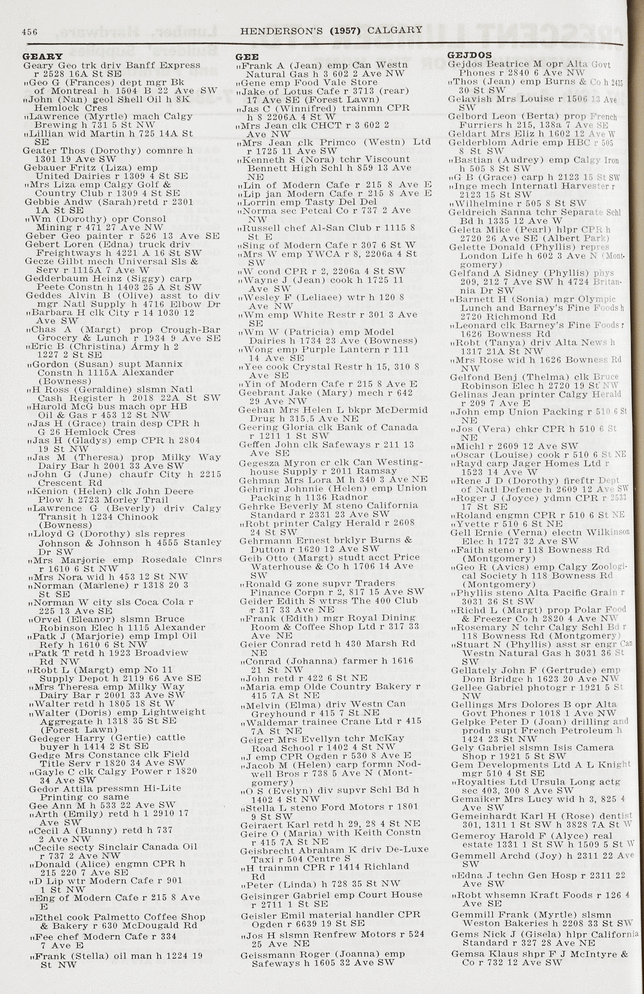 456
HENDERSON'S (1957) CALGARY
GEARY
Geary Geo trk driv Banff Express
r 2528 16A St SE
„Geo G (Frances) dept mgr Bk
of Montreal h 1504 B 22 Ave SW
„John (Nan) geol Shell Oil h 8K
Hemlock Cres
„Lawrence (Myrtle) mach Calgy
Brewing h 731 5 St NW
„Lillian wid Martin h 725 14A St
SE
Geater Thos (Dorothy) comnre h
1301 19 Ave SW
Gebauer Fritz (Liza) emp
United Dairies r 1309 4 St SE
„Mrs Liza emp Calgy Golf &
Country Club r 1309 4 St SE
Gebbie Andw (Sarah)retd r 2301
1A St SE
„Wm (Dorothy) opr Consol
Mining r 471 27 Ave NW
Geber Geo painter r 526 13 Ave SE
Gebert Loren (Edna) truck driv
Freightways h 4221 A 16 St SW
Gecze Gilbt mech Universal Sls &
Serv r 1115A 7 Ave W
Gedderbaum Heinz (Siggy) carp
Peete Constn h 1403 25 A St SW
Geddes Alvin B (Olive) asst to div
mgr Natl Supply h 4716 Elbow Dr
„Barbara H clk City r 14 1030 12
Ave SW
„Chas A (Margt) prop Crough-Bar
Grocery & Lunch r 1934 9 Ave SE
„Eric B (Christina) Army h 2
1227 2 St SE
„Gordon (Susan) supt Mannix
Constn h 1115A Alexander
(Bowness)
„H Ross (Geraldine) slsmn Natl
Cash Register h 2018 22A St SW
„Harold McG bus mach opr HB
Oil & Gas r 453 12 St NW
„Jas H (Grace) train desp CPR h
G 26 Hemlock Cres
„Jas H (Gladys) emp CPR h 2804
19 St NW
„Jas M (Theresa) prop Milky Way
Dairy Bar h 2001 33 Ave SW
„John G (June) chaufr City h 2215
Crescent Rd
„Kenion (Helen) clk John Deere
Plow h 2723 Morley Trail
„Lawrence G (Beverly) driv Calgy
Transit h 1234 Chinook
(Bowness)
„Lloyd G (Dorothy) sls repres
Johnson & Johnson h 4555 Stanley
Dr SW
„Mrs Marjorie emp Rosedale Clnrs
r 1610 6 St NW
„Mrs Nora wid h 453 12 St NW
„Norman (Marlene) r 1318 20 3
St SE
„Norman W city sls Coca Cola r
225 13 Ave SE
„Orvel (Eleanor) slsmn Bruce
Robinson Elec h 1115 Alexander
„Patk J (Marjorie) emp Impl Oil
Refy h 1610 6 St NW
„Patk T retd h 1923 Broadview
Rd NW
„Robt L (Margt) emp No 11
Supply Depot h 2119 66 Ave SE
„Mrs Theresa emp Milky Way
Dairy Bar r 2001 33 Ave SW
„Walter retd h 1805 18 St W
„Walter (Doris) emp Lightweight
Aggregate h 1318 35 St SE
(Forest Lawn)
Gedeger Harry (Gertie) cattle
buyer h 1414 2 St SE
Gedge Mrs Constance clk Field
Title Serv r 1820 34 Ave SW
„Gayle C clk Calgy Power r 1820
34 Ave SW
Gedor Attila pressmn Hi-Lite
Printing co same
Gee Ann M h 533 22 Ave SW
„Arth (Emily) retd h 1 2910 17
Ave SW
„Cecil A (Bunny) retd h 737
2 Ave NW
„Cecile secty Sinclair Canada Oil
r 737 2 Ave NW
„Donald (Alice) engmn CPR h
215 220 7 Ave SE
„D Lip wtr Modern Cafe r 901
1 St NW
„Eng of Modern Cafe r 215 8 Ave
E
„Ethel cook Palmetto Coffee Shop
& Bakery r 630 McDougall Rd
„Fee chef Modern Cafe r 334
7 Ave E
„Frank (Stella) oil man h 1224 19
St NW
GEE
„Frank A (Jean) emp Can Westn
Natural Gas h 3 602 2 Ave NW
„Gene emp Food Vale Store
„Jake of Lotus Cafe r 3713 (rear)
17 Ave SE (Forest Lawn)
„Jas C (Winifred) trainmn CPR
h 8 2206A 4 St W
„Mrs Jean clk CHCT r 3 602 2
Ave NW
„Mrs Jean clk Primco (Westn) Ltd
r 1725 11 Ave SW
„Kenneth S (Nora) tchr Viscount
Bennett High Schl h 859 13 Ave
NE
„Lin of Modern Cafe r 215 8 Ave E
„Lip jan Modern Cafe r 215 8 Ave E
„Lorrin emp Tasty Del Del
„Norma sec Petcal Co r 737 2 Ave
NW
„Russell chef Al-San Club r 1115 8
St E
„Sing of Modern Cafe r 307 6 St W
„Mrs W emp YWCA r 8, 2206a 4 St
SW
„W cond CPR r 2, 2206a 4 St SW
„Wayne J (Jean) cook h 1725 11
Ave SW
„Wesley P (Leliaee) wtr h 120 8
Ave NW
„Wm emp White Restr r 301 3 Ave
SE
„Wm W (Patricia) emp Model
Dairies h 1734 23 Ave (Bowness)
„Wong emp Purple Lantern r 111
14 Ave SE
„Yee cook Crystal Restr h 15, 310 8
Ave SE
„Yin of Modern Cafe r 215 8 Ave E
Geebrant Jake (Mary) mech r 642
29 Ave NW
Geehan Mrs Helen L bkpr McDermid
Drug h 315,5 Ave NE
Geering Gloria clk Bank of Canada
r 1211 1 St SW
Geffen John clk Safeways r 211 13
Ave SE
Gegesza Myron cr clk Can Westing-
house Supply r 2011 Ramsay
Gehman Mrs Lora M h 340 3 Ave NE
Gehring Johnnie (Helen) emp Union
Packing h 1136 Radnor
Gehrke Beverly M steno California
Standard r 2331 23 Ave SW
„Robt printer Calgy Herald r 2608
24 St SW
Gehrmann Ernest brklyr Burns &
Dutton r 1620 12 Ave SW
Geib Otto (Margt) studt acct Price
Waterhouse & Co h 1706 14 Ave
SW
„Ronald G zone supvr Traders
Finance Corpn r 2, 817 15 Ave SW
Geider Edith S wtrss The 400 Club
r 317 33 Ave NE
„Frank (Edith) mgr Royal Dining
Room & Coffee Shop Ltd r 317 33
Ave NE
Geier Conrad retd h 430 Marsh Rd
NE
„Conrad (Johanna) farmer h 1616
21 St NW
„John retd r 422 6 St NE
„Maria emp Olde Country Bakery r
415 7A St NE
„Melvin (Elma) driv Westn Can
Greyhound r 415 7 St NE
„Waldemar trainee Crane Ltd r 415
7A St NE
Geiger Mrs Evellyn tchr McKay
Road School r 1402 4 St NW
„J emp CPR Ogden r 530 8 Ave E
„Jacob M (Helen) carp formn Nod-
well Bros r 738 5 Ave N (Mont-
gomery)
„O S (Evelyn) div supvr Schl Bd h
1402 4 St NW
„Stella L steno Ford Motors r 1801
9 St SW
Geiraert Karl retd h 29, 28 4 St NE
Geire O (Maria) with Keith Constn
r 415 7A St NE
Geisbrecht Abraham K driv De-Luxe
Taxi r 504 Centre S
„H trainmn CPR r 1414 Richland
Rd
„Peter (Linda) h 728 35 St NW
Geisinger Gabriel emp Court House
r 2711 1 St SE
Geisler Emil material handler CPR
Ogden r 6639 19 St SE
„Jos H slsmn Renfrew Motors r 524
25 Ave NE
Geissmann Roger (Joanna) emp
Safeways h 1605 32 Ave SW
GEJDOS
Gejdos Beatrice M opr Alta Govt
Phones r 2840 6 Ave NW
„Thos (Jean) emp Burns & Co h 2431
30 St SW
Gelavish Mrs Louise r 1506 13 Ave
SW
Gelbord Leon (Berta) prop French
Furriers h 215, 138a 7 Ave SE
Geldart Mrs Eliz h 1602 12 Ave W
Gelderblom Adrie emp HBC r 505
8 St SW
„Bastian (Audrey) emp Calgy Iron
h 505 8 St SW
„G B (Grace) carp h 2123 15 St SW
„Inge mech Internatl Harvester r
2123 15 St SW
„Wilhelmine r 505 8 St SW
Geldreich Sanna tchr Separate Schl
Bd h 1335 12 Ave W
Geleta Mike (Pearl) hlpr CPR h
2720 26 Ave SE (Albert Park)
Gelette Donald (Phyllis) repres
London Life h 602 3 Ave N (Mont-
gomery)
Gelfand A Sidney (Phyllis) phys
209, 212 7 Ave SW h 4724 Britan-
nia Dr SW
„Barnett H (Sonia) mgr Olympic
Lunch and Barney's Fine Foods h
2720 Richmond Rd
„Leonard clk Barney's Fine Foods r
1626 Bowness Rd
„Robt (Tanya) driv Alta News h
1317 21A St NW
„Mrs Rose wid h 1626 Bowness Rd
NW
Gelfond Benj (Thelma) clk Bruce
Robinson Elec h 2720 19 St NW
Gelinas Jean printer Calgy Herald
r 209 7 Ave E
„John emp Union Packing r 510 6 St
NE
„Jos (Vera) chkr CPR h 510 6 St
NE
„Michl r 2609 12 Ave SW
„Oscar (Louise) cook r 510 6 St NE
„Rayd carp Jager Homes Ltd r
1523 14 Ave W
„Rene J D (Dorothy) fireftr Dept
of Natl Defence h 2609 12 Ave SW
„Roger J (Joyce) ydmn CPR r 2531
17 St SE
„Roland engmn CPR r 510 6 St NE
„Yvette r 510 6 St NE
Gell Ernie (Verna) electn Wilkinson
Elec h 1727 32 Ave SW
„Faith steno r 118 Bowness Rd
(Montgomery)
„Geo R (Avics) emp Calgy Zoologi-
cal Society h 118 Bowness Rd
(Montgomery)
„Phyllis steno Alta Pacific Grain r
3031 36 St SW
„Richd L (Margt) prop Polar Food
& Freezer Co h 2820 4 Ave NW
„Rosemary N tchr Calgy Schl Bd r
118 Bowness Rd (Montgomery)
„Stuart N (Phyllis) asst sr engr Can
Westn Natural Gas h 3031 36 St
SW
Gellately John F (Gertrude) emp
Dom Bridge h 1623 20 Ave NW
Gellee Gabriel photogr r 1921 5 St
NW
Gellings Mrs Dolores B opr Alta
Govt Phones r 1018 1 Ave NW
Gelpke Peter D (Joan) drilling and
prodn supt French Petroleum h
1424 23 St NW
Gely Gabriel slsmn Isis Camera
Shop r 1921 5 St SW
Gem Developments Ltd A L Knight
mgr 510 4 St SE
„Royalties Ltd Ursula Long actg
sec 403, 300 8 Ave SW
Gemaiker Mrs Lucy wid h 3, 825 4
Ave SW
Gemeinhardt Karl H (Rose) dentist
301, 1311 1 St SW h 3828 7A St W
Gemeroy Harold F (Alyce) real
estate 1331 1 St SW h 1509 5 St W
Gemmell Archd (Joy) h 2311 22 Ave
SW
„Edna J techn Gen Hosp r 2311 22
Ave SW
„Robt whsemn Kraft Foods r 126 4
Ave SE
Gemmill Frank (Myrtle) slsmn
Weston Bakeries h 2208 33 St SW
Gems Nick J (Gisela) hlpr California
Standard r 327 28 Ave NE
Gemsa Klaus shpr F J McIntyre &
Co r 732 12 Ave SW